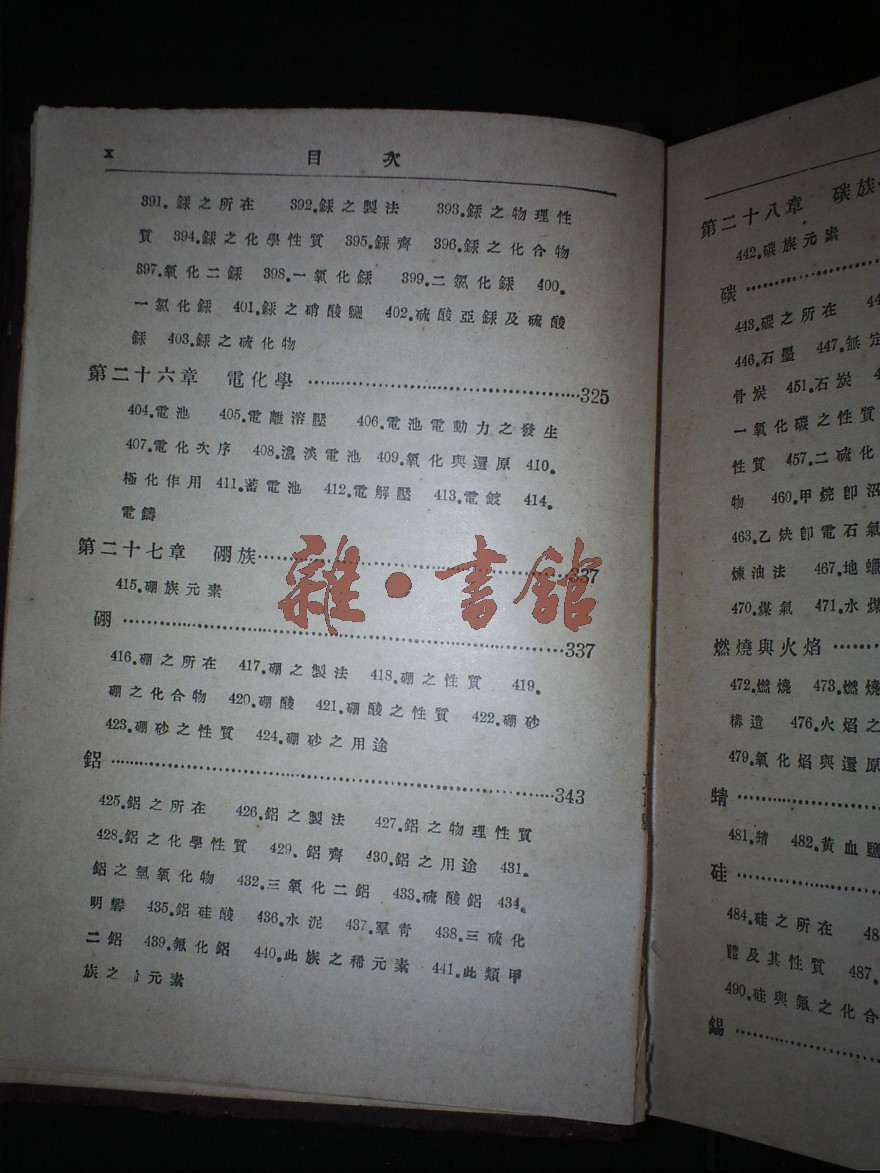 x 目 次
391.銾之所在 392.銾之製法 393.銾之物理性
質 394.銾之化學性質 395.銾齊 396.銾之化合物
397.氧化二銾 398.一氧化銾 399.二氯化銾 400.
一氯化銾 401.銾之硝酸鹽 402.硫酸亞銾及硫酸
銾 403.銾之硫化物
第二十六章 電化學 ……325
404.電池 405.電離溶壓 406.電池電動力之發生
407.電化次序 408.濃淡電池 409.氧化與還原 410.
極化作用 411.蓄電池 412.電解壓 413.電鍍 414.
電鑄
第二十七章 硼族……337
415.硼族元素
硼 ……337
416.硼之所在 417.硼之製法 418.硼之性質 419.
硼之化合物 420.硼酸 421.硼酸之性質 422.硼砂
423.硼砂之性質 424.硼砂之用途
鋁 ……343
425.鋁之所在 426.鋁之製法 427.鋁之物理性質
428.鋁之化學性質 429.鋁齊 430.鋁之用途 431.
鋁之氫氧化物 432.三氧化二鋁 433.硫酸鋁 434.
明礬 435.鋁硅酸 436.水泥 437.羣青 438.三硫化
二鋁 439.氟化鋁 440.此族之稀元素 441.此類甲
族之 元素
雜·書館
第二十八章 碳族
442.碳族元素
碳 ……
443.碳之所在 44
446.石墨 447.無定
骨炭 451.石炭
一氧化碳之性質
性質 457.二硫化
物 460.甲烷卽沼
463.乙炔卽電石氣
煉油法 467.地蠟
470.煤氣 471.水煤
燃燒與火焰 ……
472.燃燒 473.燃燒
構造 476.火焰之
479.氧化焰與還原
䝼 ……
481. 482.黃血鹽
硅 ……
484.硅之所在 48
體及其性質 487.
490.硅與氟之化合
錫 ……